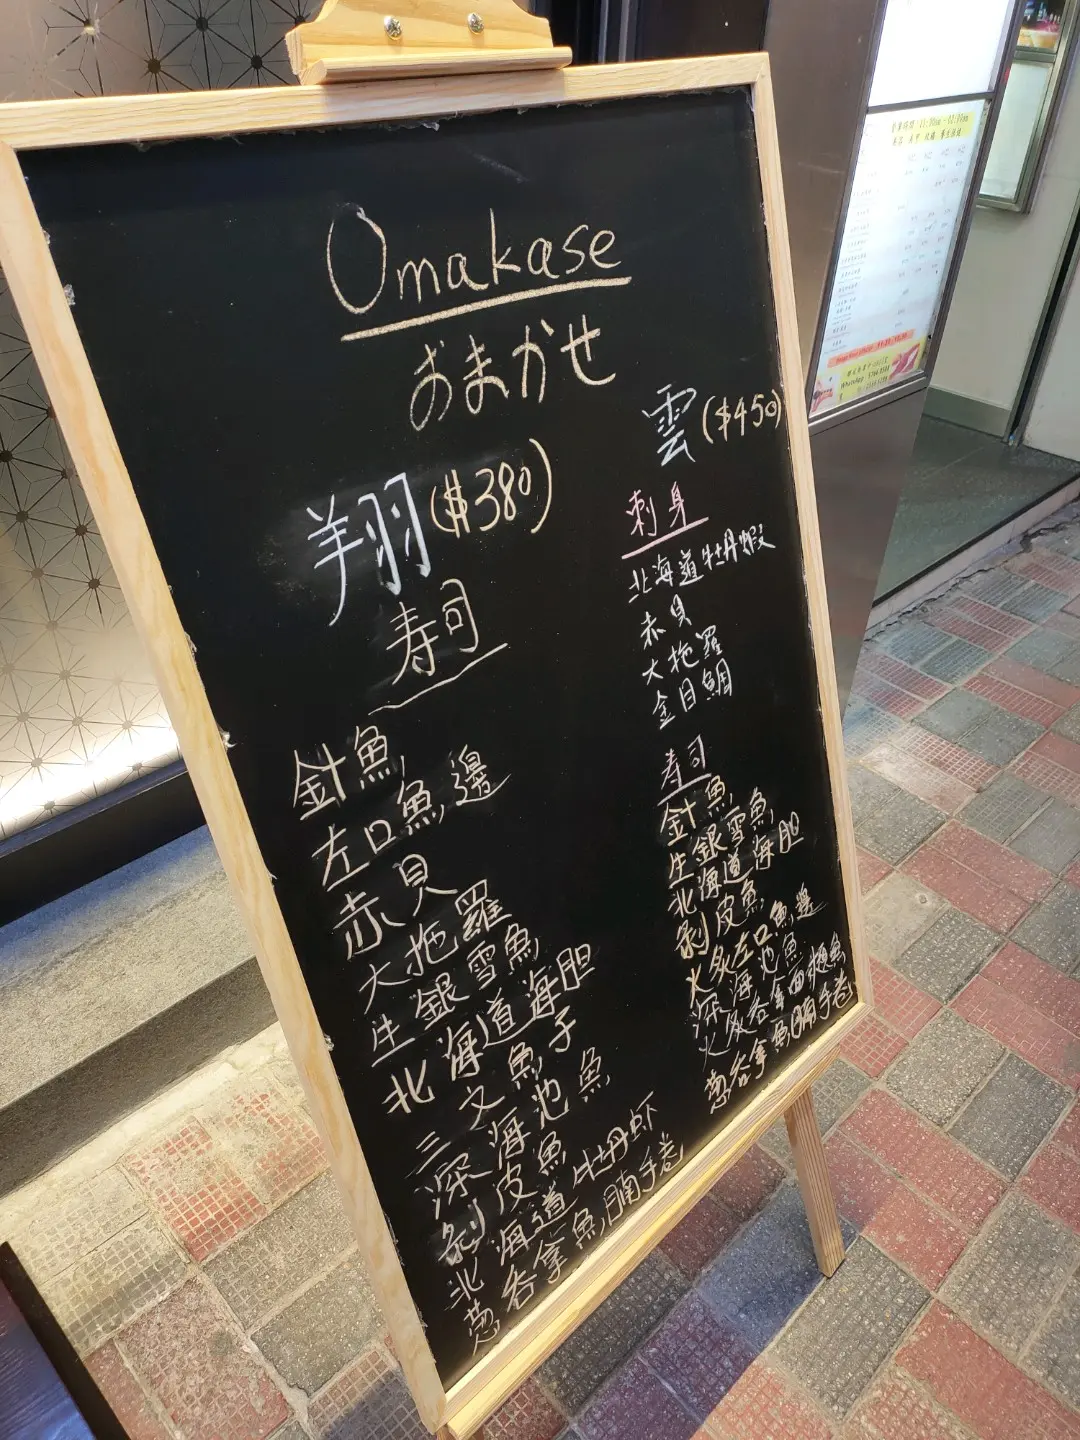 Omakase
おまかせ
翔($380)
寿司
針魚
左口魚邊
赤貝
大拖羅
生銀雪魚
北海道海胆
三文魚子
深海池魚
剝皮魚
北海道牡丹虾
葱吞拿魚腩手卷
雲($450)
刺身
北海道牡丹蝦
赤貝
大拖羅
金目鯛
寿司
針魚
生銀雪魚
北海道海胆
剝皮魚
火炙左口魚邊
深海池魚
火炙吞拿面頰魚
葱吞拿魚腩手卷
WhatsApp